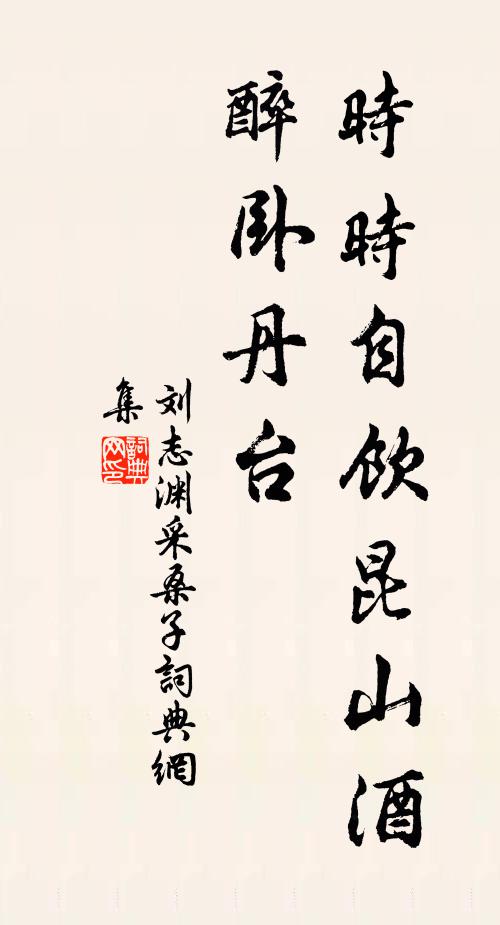 時時自飲昆山酒
醉卧丹台
刘志渊采桑子詞典網
集
詞典网印